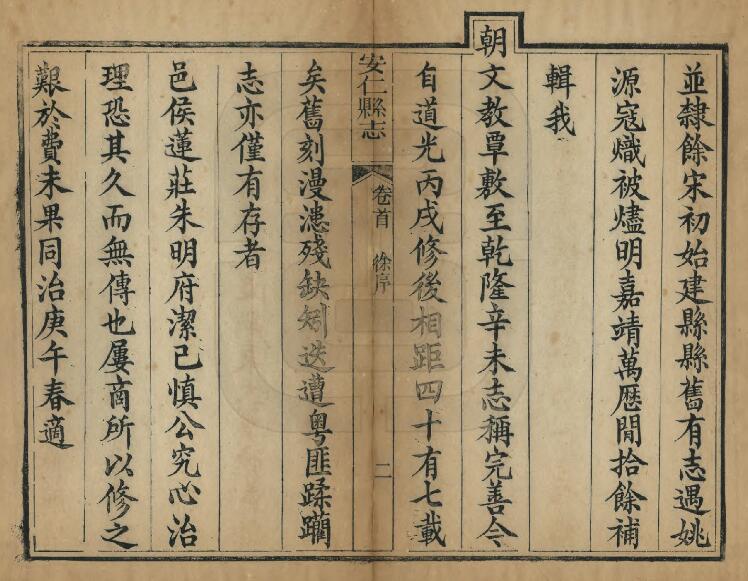 並隸餘宋初始建縣縣舊有志遇姚
源寇熾被燼明嘉靖萬歷間拾餘補
輯我
朝文教覃敷至乾隆辛未志稱完善今
自道光丙戌修後相距四十有七載
安仁縣志 卷首 徐序 二
矣舊刻漫漶殘缺矧迭遭粵匪蹂躪
志亦僅有存者
邑侯蓮莊朱明府潔己慎公究心治
理恐其久而無傳也屢商所以修之
艱於費未果同治庚午春適